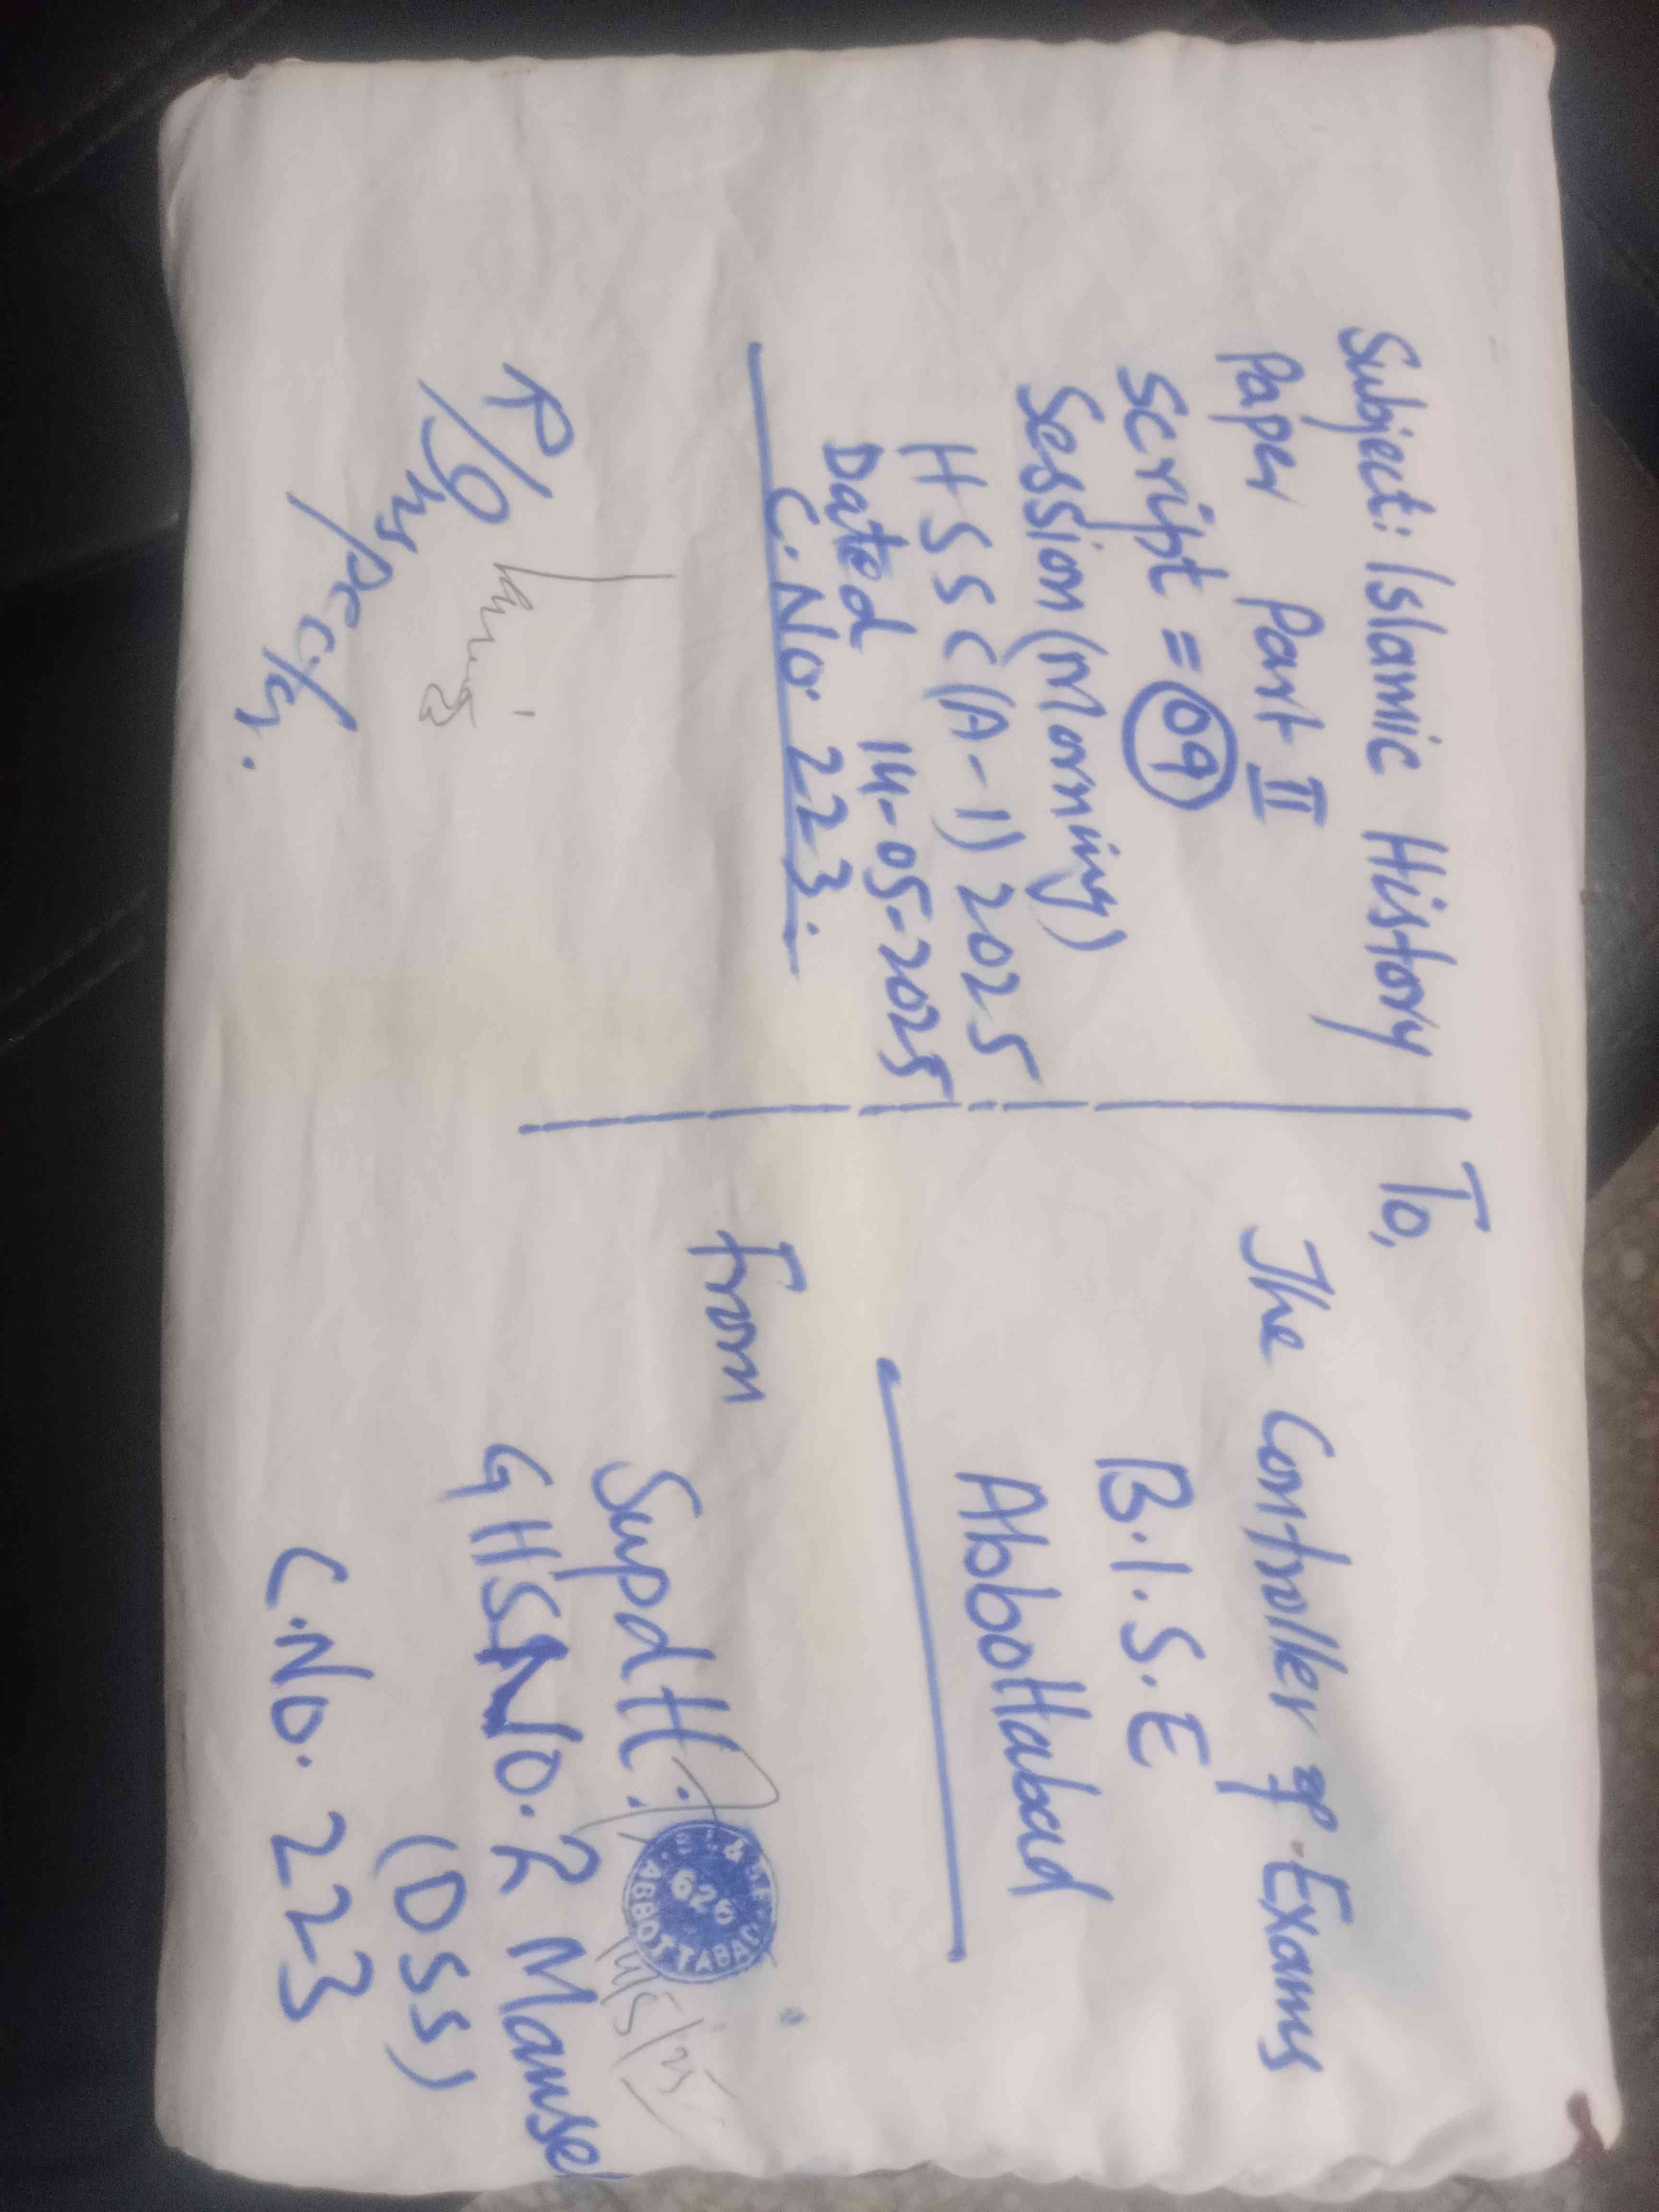 Subject: Islamic History
Paper Part II
Script = 09
Session (Morning)
HSSC (A-1) 2025
Dated 14-05-2025
C.No. 223.
R/Inspector.
To,
The Controller of Exams
B.I.S.E
Abbottabad
From
Supdtt:
GHSNo.2 Manse
(DSS)
C.No. 223
626
ABBOTTABAD